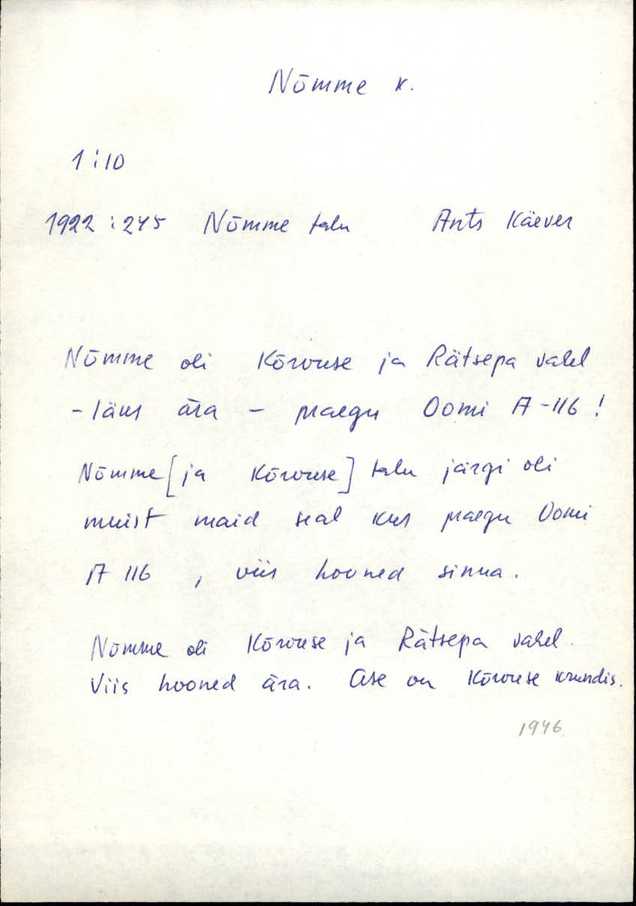 Nõmme k.
1:10
1922:245 Nõmme talu Ants Käever
Nõmme oli Kõrouse ja Rätsepa vahel
- läks ära - praegu Oomi A-116!
Nõmme [ja Kõrouse] talu järgi oli
muist maid seal kus praegu Oomi
A 116 , viis hooned sinna.
Nõmme oli Kõrouse ja Rätsepa vahel.
Viis hooned ära. Ase on Kõrouse krundis.
1946